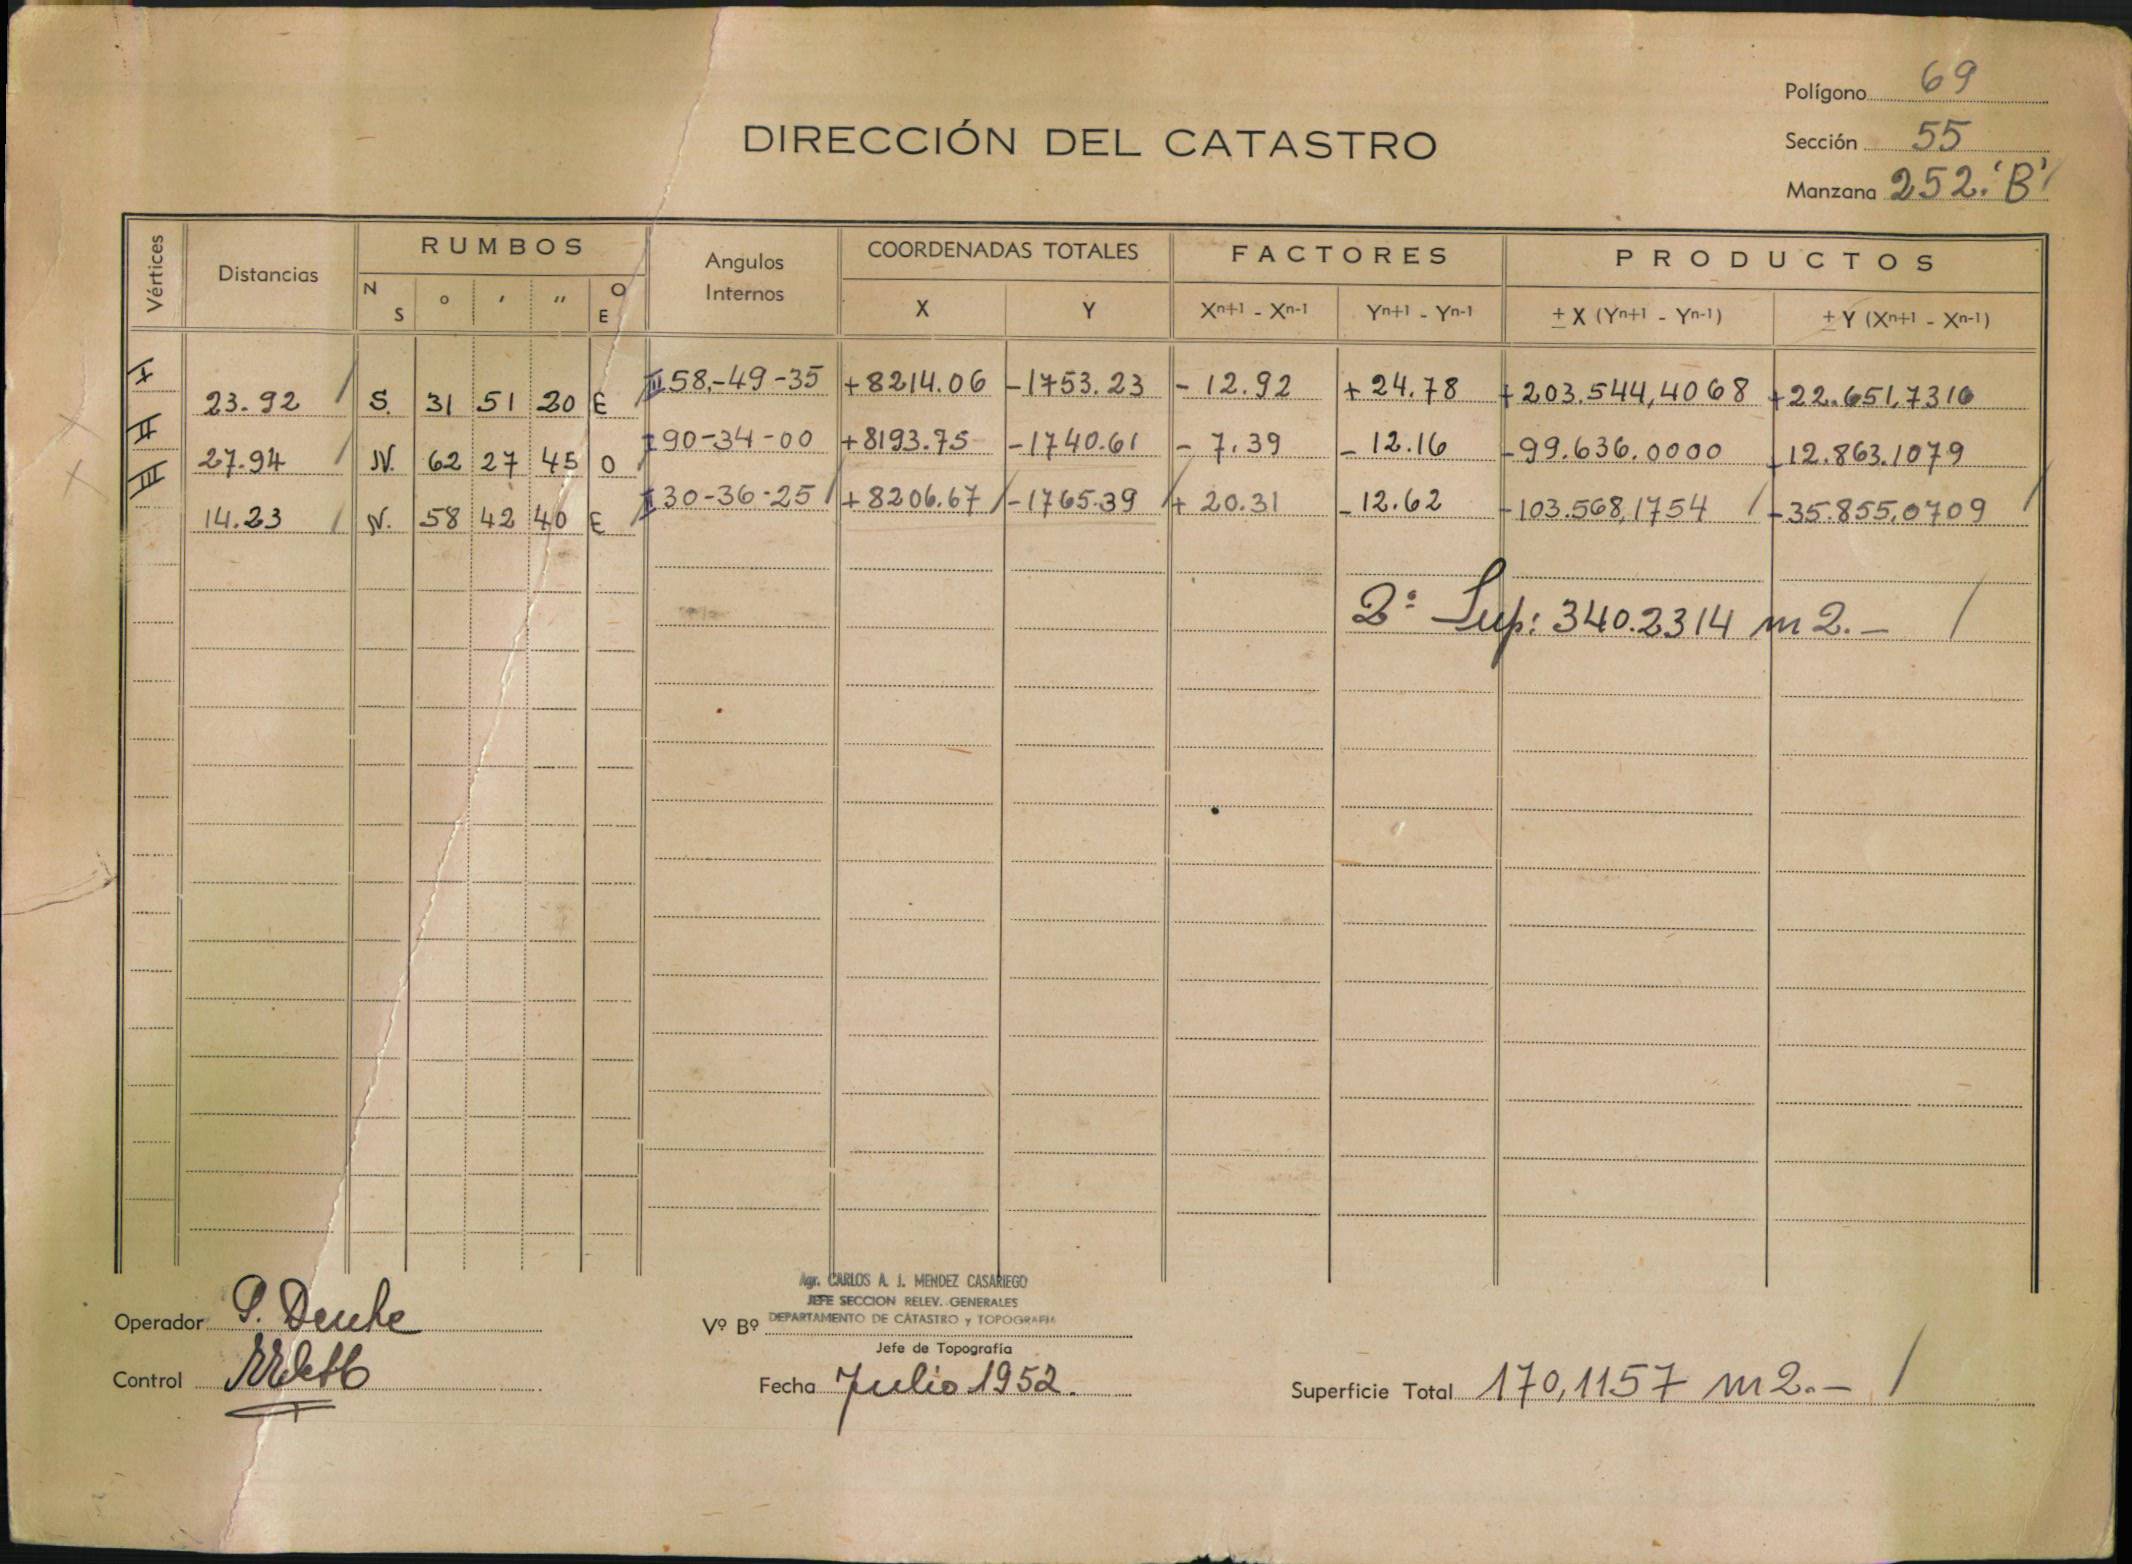 Polígono 69
DIRECCIÓN DEL CATASTRO
Sección 55
Manzana 252."B"
Vértices Distancias RUMBOS N S ° ' " O E Angulos Internos COORDENADAS TOTALES X Y FACTORES Xn+1 - Xn-1 Yn+1 - Yn-1 PRODUCTOS ± X (Yn+1 - Yn-1) ± Y (Xn+1 - Xn-1)
I 23.92 S. 31 51 20 E III 58-49-35 +8214.06 -1753.23 - 12.92 + 24.78 +203.544,4068 +22.651,7316
II 27.94 N. 62 27 45 O I 90-34-00 +8193.75 -1740.61 - 7.39 - 12.16 -99.636.0000 +12.863.1079
III 14.23 N. 58 42 40 E II 30-36-25 +8206.67 -1765.39 + 20.31 -12.62 -103.568,1754 -35.855,0709
2º Sup: 340.2314 m2.-
Agr. CARLOS A. J. MENDEZ CASARIEGO
JEFE SECCION RELEV. GENERALES
DEPARTAMENTO DE CATASTRO y TOPOGRAFIA
Operador
Vº Bº
Jefe de Topografía
Control
Fecha Julio 1952.
Superficie Total 170,1157 m2.-